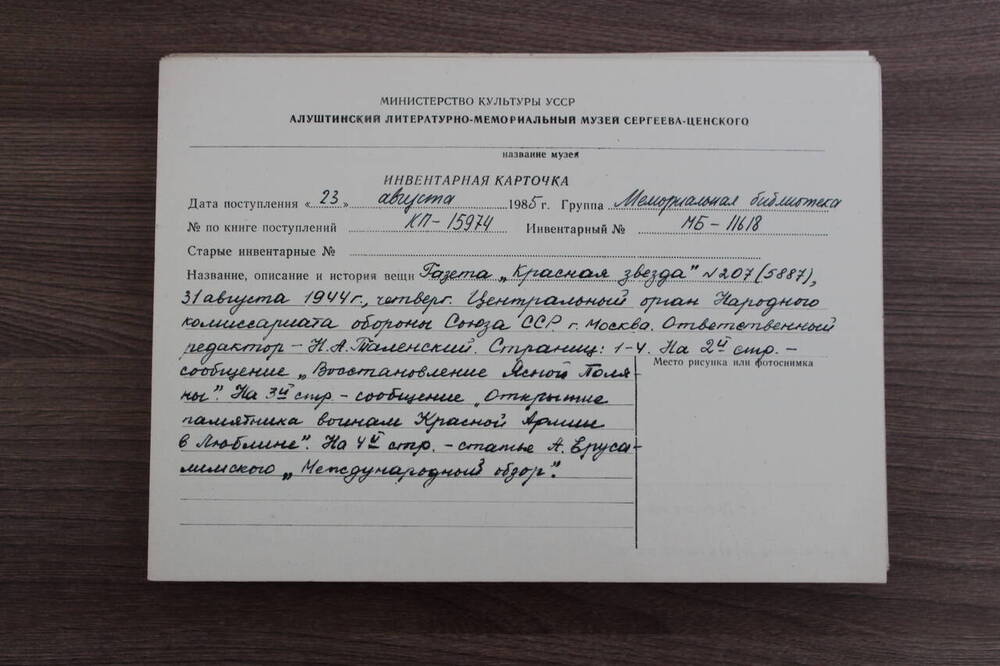 МИНИСТЕРСТВО КУЛЬТУРЫ УССР
АЛУШТИНСКИЙ ЛИТЕРАТУРНО-МЕМОРИАЛЬНЫЙ МУЗЕЙ СЕРГЕЕВА-ЦЕНСКОГО
название музея
ИНВЕНТАРНАЯ КАРТОЧКА
Дата поступления «23» августа 1985 г. Группа Мемориальная библиотека
№ по книге поступлений КП-15974 Инвентарный № МБ-11618
Старые инвентарные №
Название, описание и история вещи Газета „Красная звезда" №207 (5887),
31 августа 1944 г., четверг. Центральный орган Народного
комиссариата обороны Союза ССР. г. Москва. Ответственный
редактор – Н.А. Таленский. Страниц: 1-4. На 2й стр. –
Место рисунка или фотоснимка
сообщение „Восстановление Ясной Поля-
ны". На 3й стр – сообщение „Открытие
памятника воинам Красной Армии
в Люблине". На 4й стр. – статья А. Еруса-
лимского „Международный обзор".